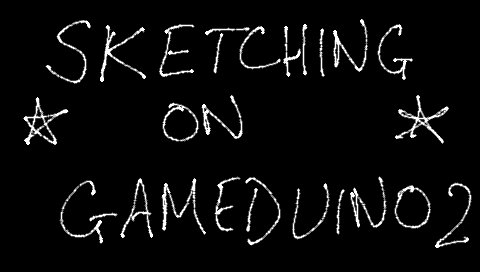 SKETCHING
ON
GAMEDUINO2